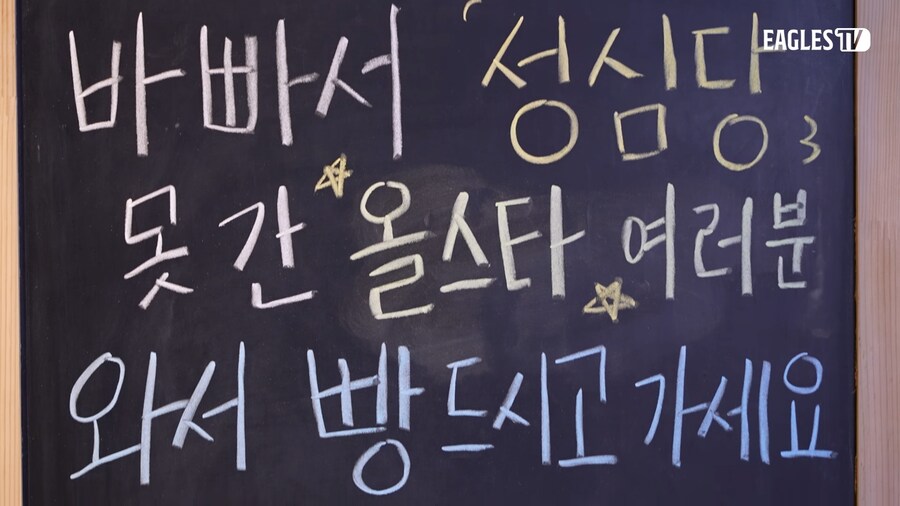 EAGLES TV
바빠서 성심당
못간 올스타 여러분
와서 빵 드시고 가세요